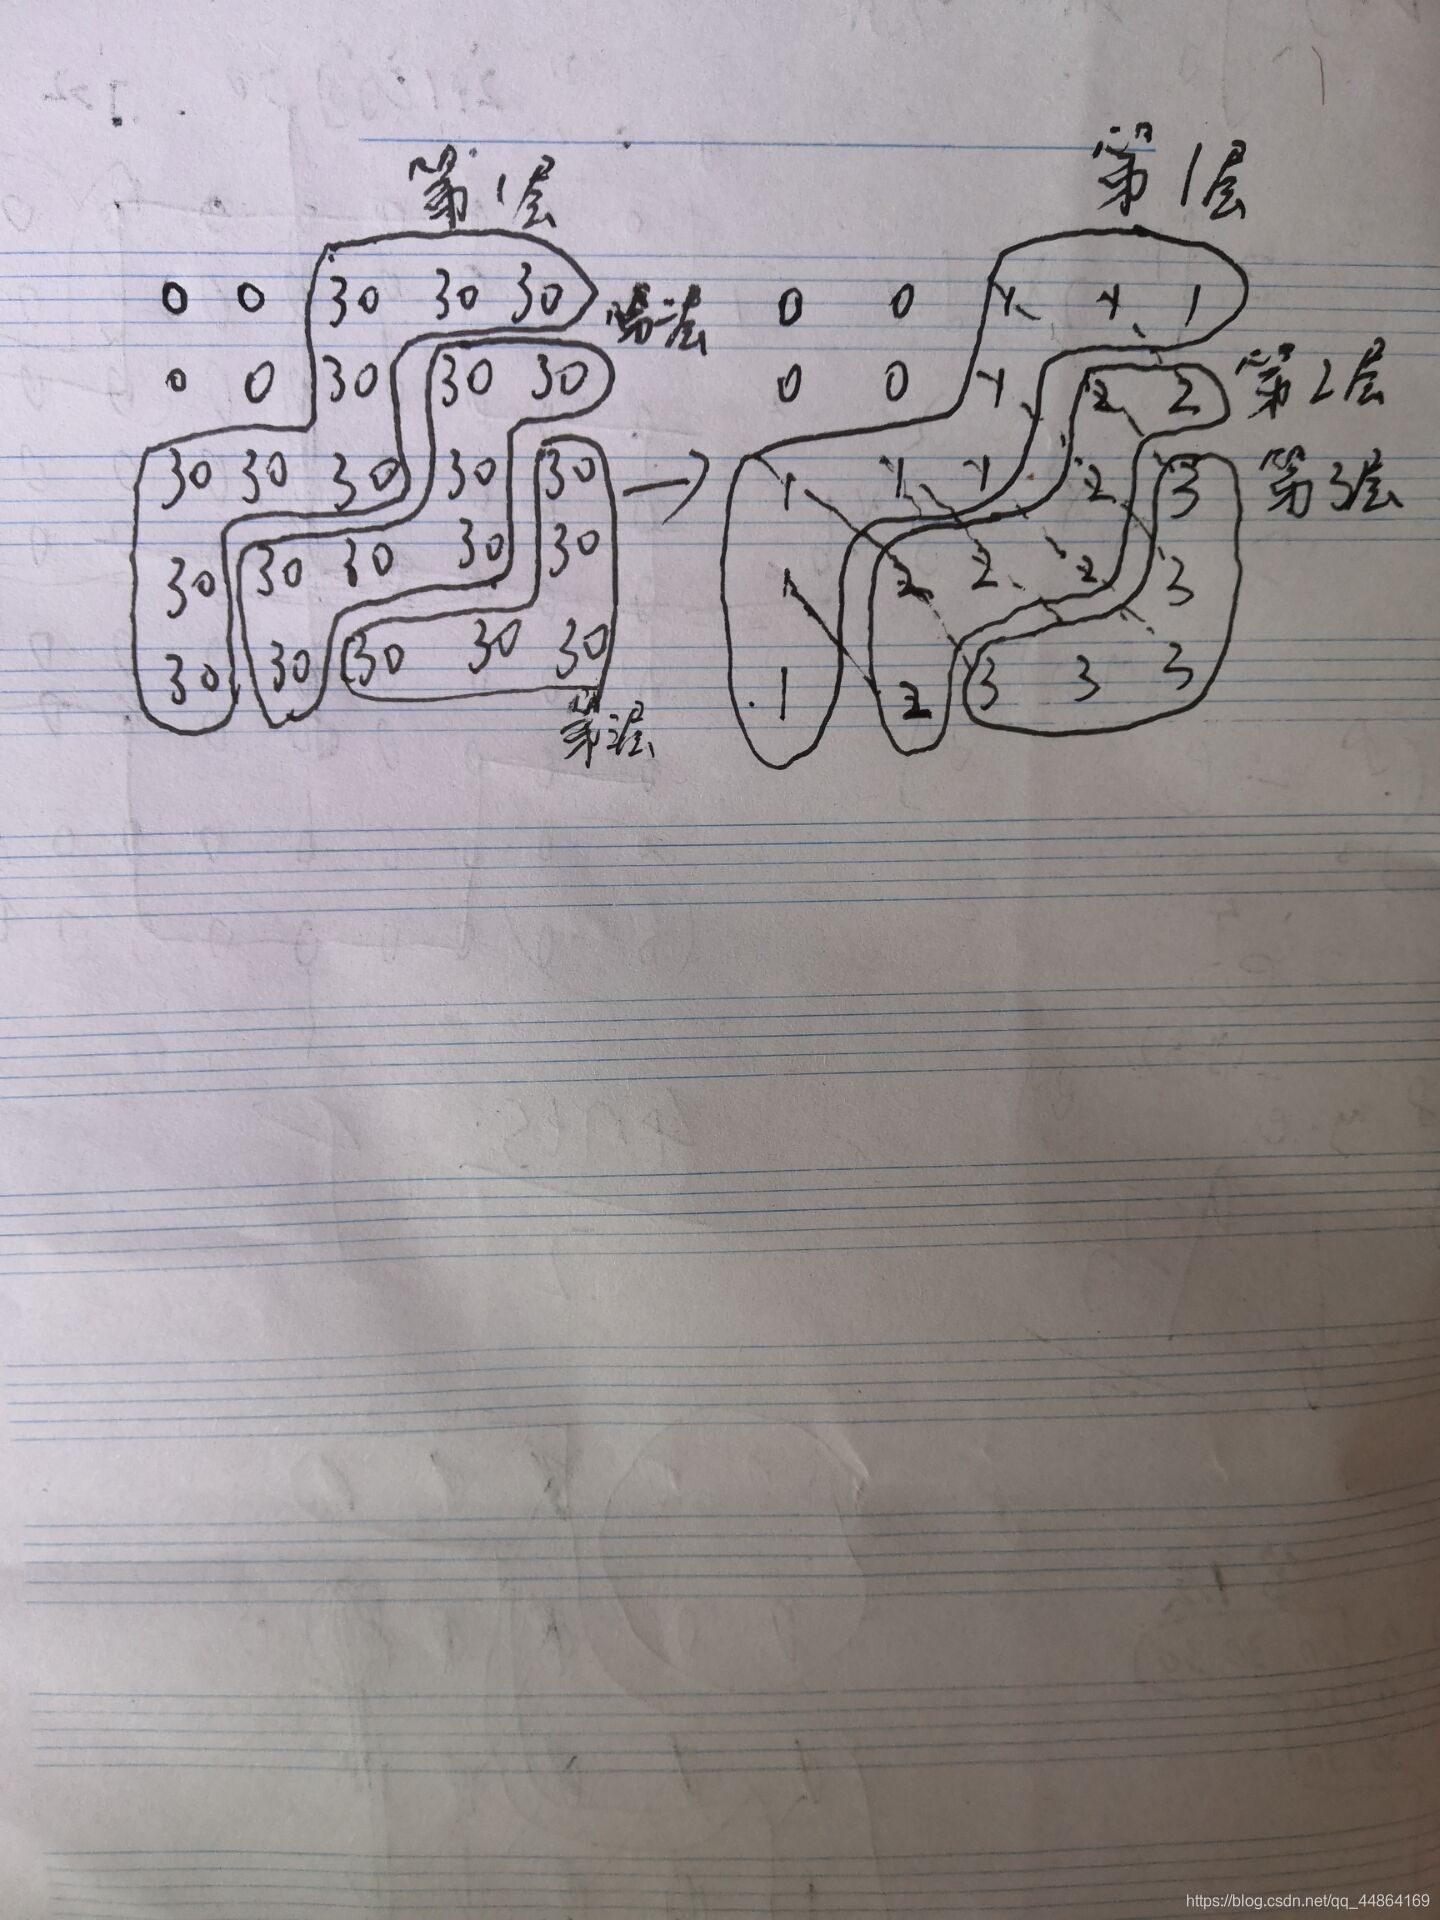 第1层 第1层
0 0 30 30 30 第二层 0 0 1 1 1
0 0 30 30 30 0 0 1 2 2 第2层
30 30 30 30 30 → 1 1 1 2 3 第3层
30 30 30 30 30 1 2 2 2 3
30 30 30 30 30 1 2 3 3 3
https://blog.csdn.net/qq_44864169